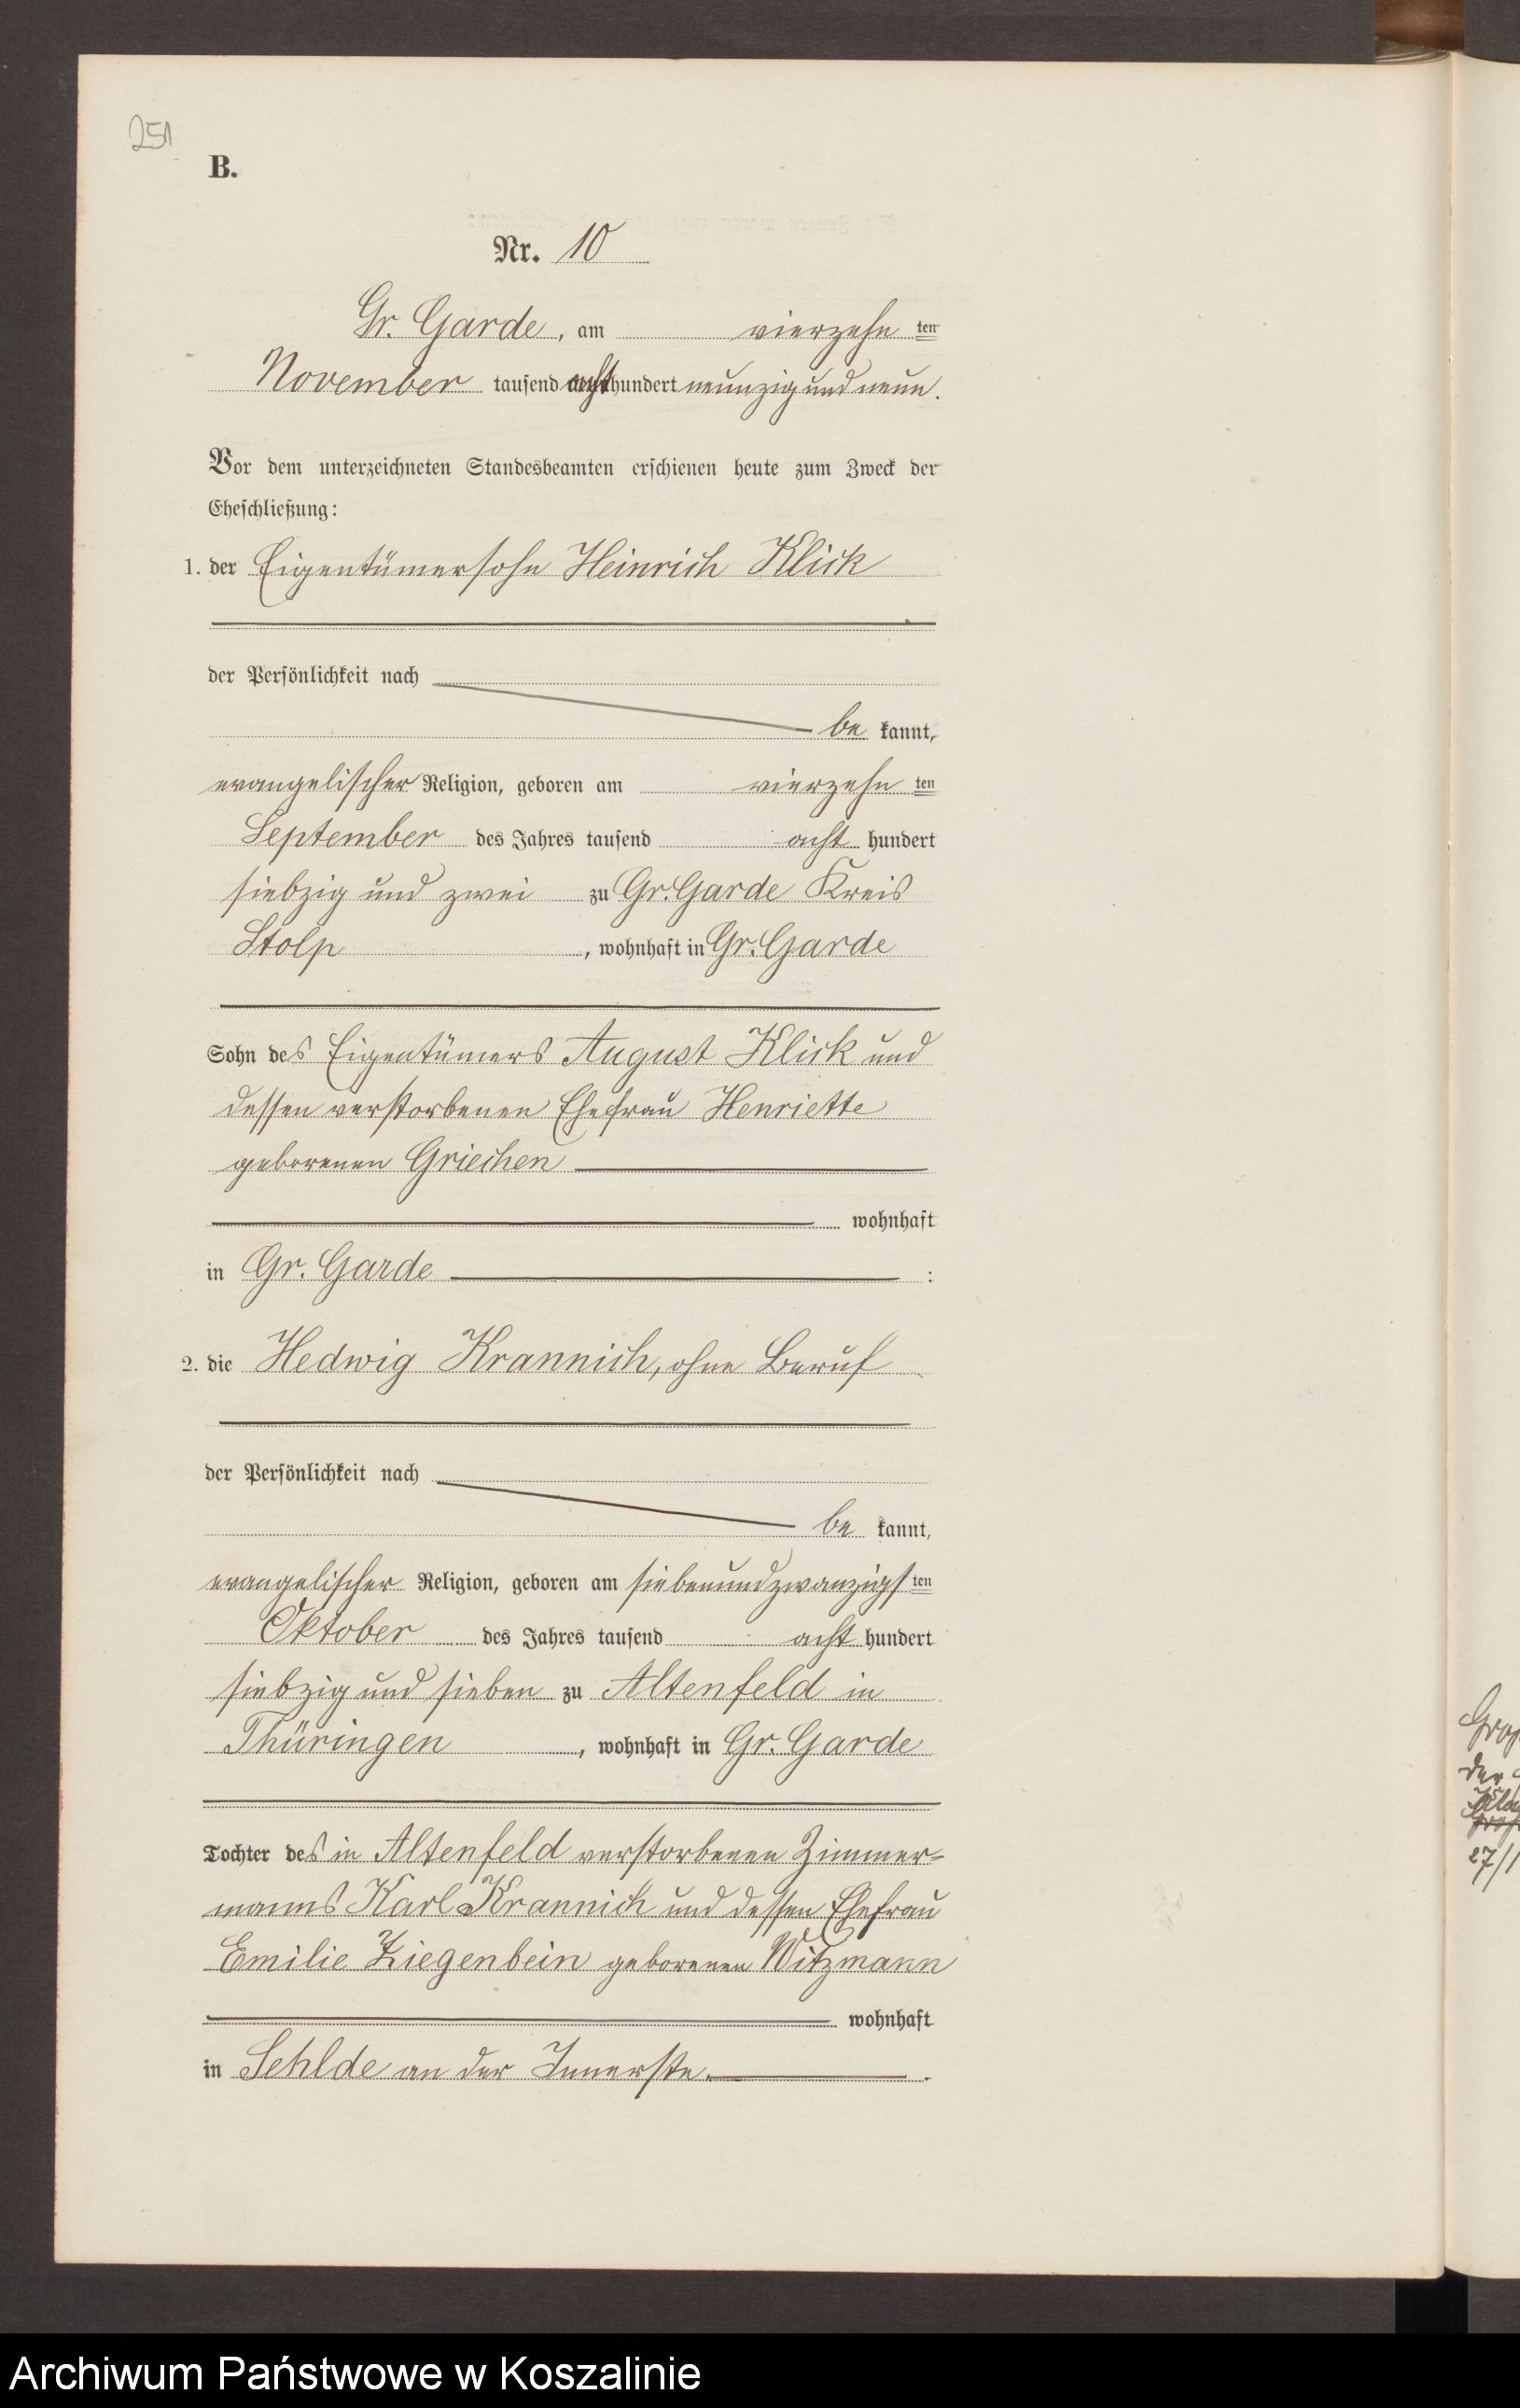 251
B.
Nr. 10
Gr. Garde, am vierzehn ten
November tausend acht hundert neunzig und neun.
Vor dem unterzeichneten Standesbeamten erschienen heute zum Zweck der
Eheschließung:
1. der Eigentümersohn Heinrich Klick
der Persönlichkeit nach
be kannt,
evangelischer Religion, geboren am vierzehn ten
September des Jahres tausend acht hundert
siebzig und zwei zu Gr. Garde Kreis
Stolp, wohnhaft in Gr. Garde
Sohn des Eigentümers August Klick und
dessen verstorbenen Ehefrau Henriette
geborenen Griechen
wohnhaft
in Gr. Garde :
2. die Hedwig Krannich, ohne Beruf
der Persönlichkeit nach
be kannt,
evangelischer Religion, geboren am siebenundzwanzigsten
Oktober des Jahres tausend acht hundert
siebzig und sieben zu Altenfeld in
Thüringen, wohnhaft in Gr. Garde
Tochter des in Altenfeld verstorbenen Zimmer-
manns Karl Krannich und dessen Ehefrau
Emilie Ziegenbein geborenen Witzmann
wohnhaft
in Sehlde an der Innerste.
der
27/1
Archiwum Państwowe w Koszalinie